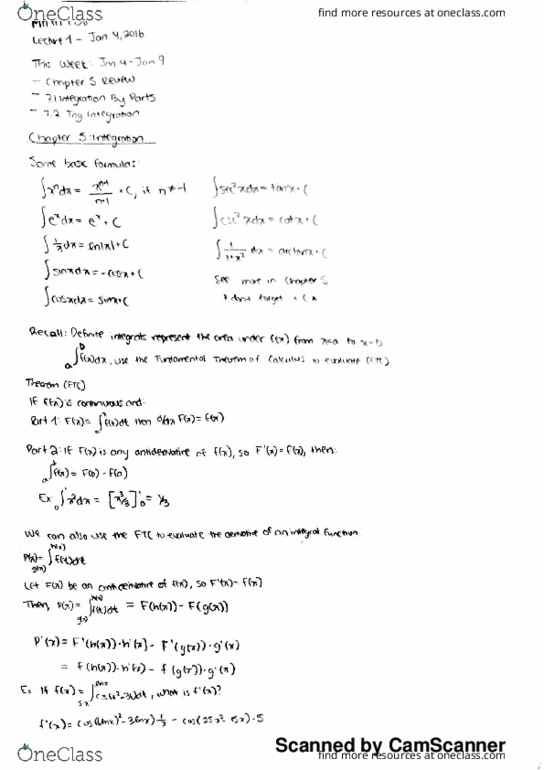 OneClass
find more resources at oneclass.com
Lecture 1 - Jan 4, 2016
This Week: Jan 4 - Jan 9
- Chapter 5 Review
- 7.1 Integration By Parts
- 7.2 Trig Integration
Chapter 5: Integration
Some basic formulas:
∫xⁿdx = xⁿ⁺¹/n+1 + C, if n ≠ -1
∫sec²xdx = tanx + C
∫eˣdx = eˣ + C
∫csc²xdx = cotx + C
∫1/x dx = ln|x| + C
∫1/1+x² dx = arctanx + C
∫sinxdx = -cosx + C
See more in Chapter 5
∫cosxdx = sinx + C
* don't forget + C *
Recall: Definite integrals represent the area under f(x) from x=a to x=b.
a∫b f(x)dx, use the Fundamental Theorem of Calculus to evaluate (FTC)
Theorem (FTC)
If f(x) is continuous and:
Part 1: F(x) = ∫f(t)dt then d/dx F(x) = f(x)
Part 2: If F(x) is any antiderivative of f(x), so F'(x) = f(x), then:
a∫b f(x) = F(b) - F(a)
Ex: 0∫1 x²dx = [x³/3]¹₀ = 1/3
We can also use the FTC to evaluate the derivative of an integral function.
P(x) = g(x)∫h(x) f(t)dt
Let F(x) be an antiderivative of f(x), so F'(x) = f(x)
Then, P(x) = g(x)∫h(x) f(t)dt = F(h(x)) - F(g(x))
P'(x) = F'(h(x))·h'(x) - F'(g(x))·g'(x)
= f(h(x))·h'(x) - f(g(x))·g'(x)
Ex If f(x) = 5x∫lnx cos(t²-3t)dt, what is f'(x)?
f'(x) = cos((lnx)² - 3lnx)·1/x - cos(25x² - 15x)·5
Scanned by CamScanner
OneClass
find more resources at oneclass.com